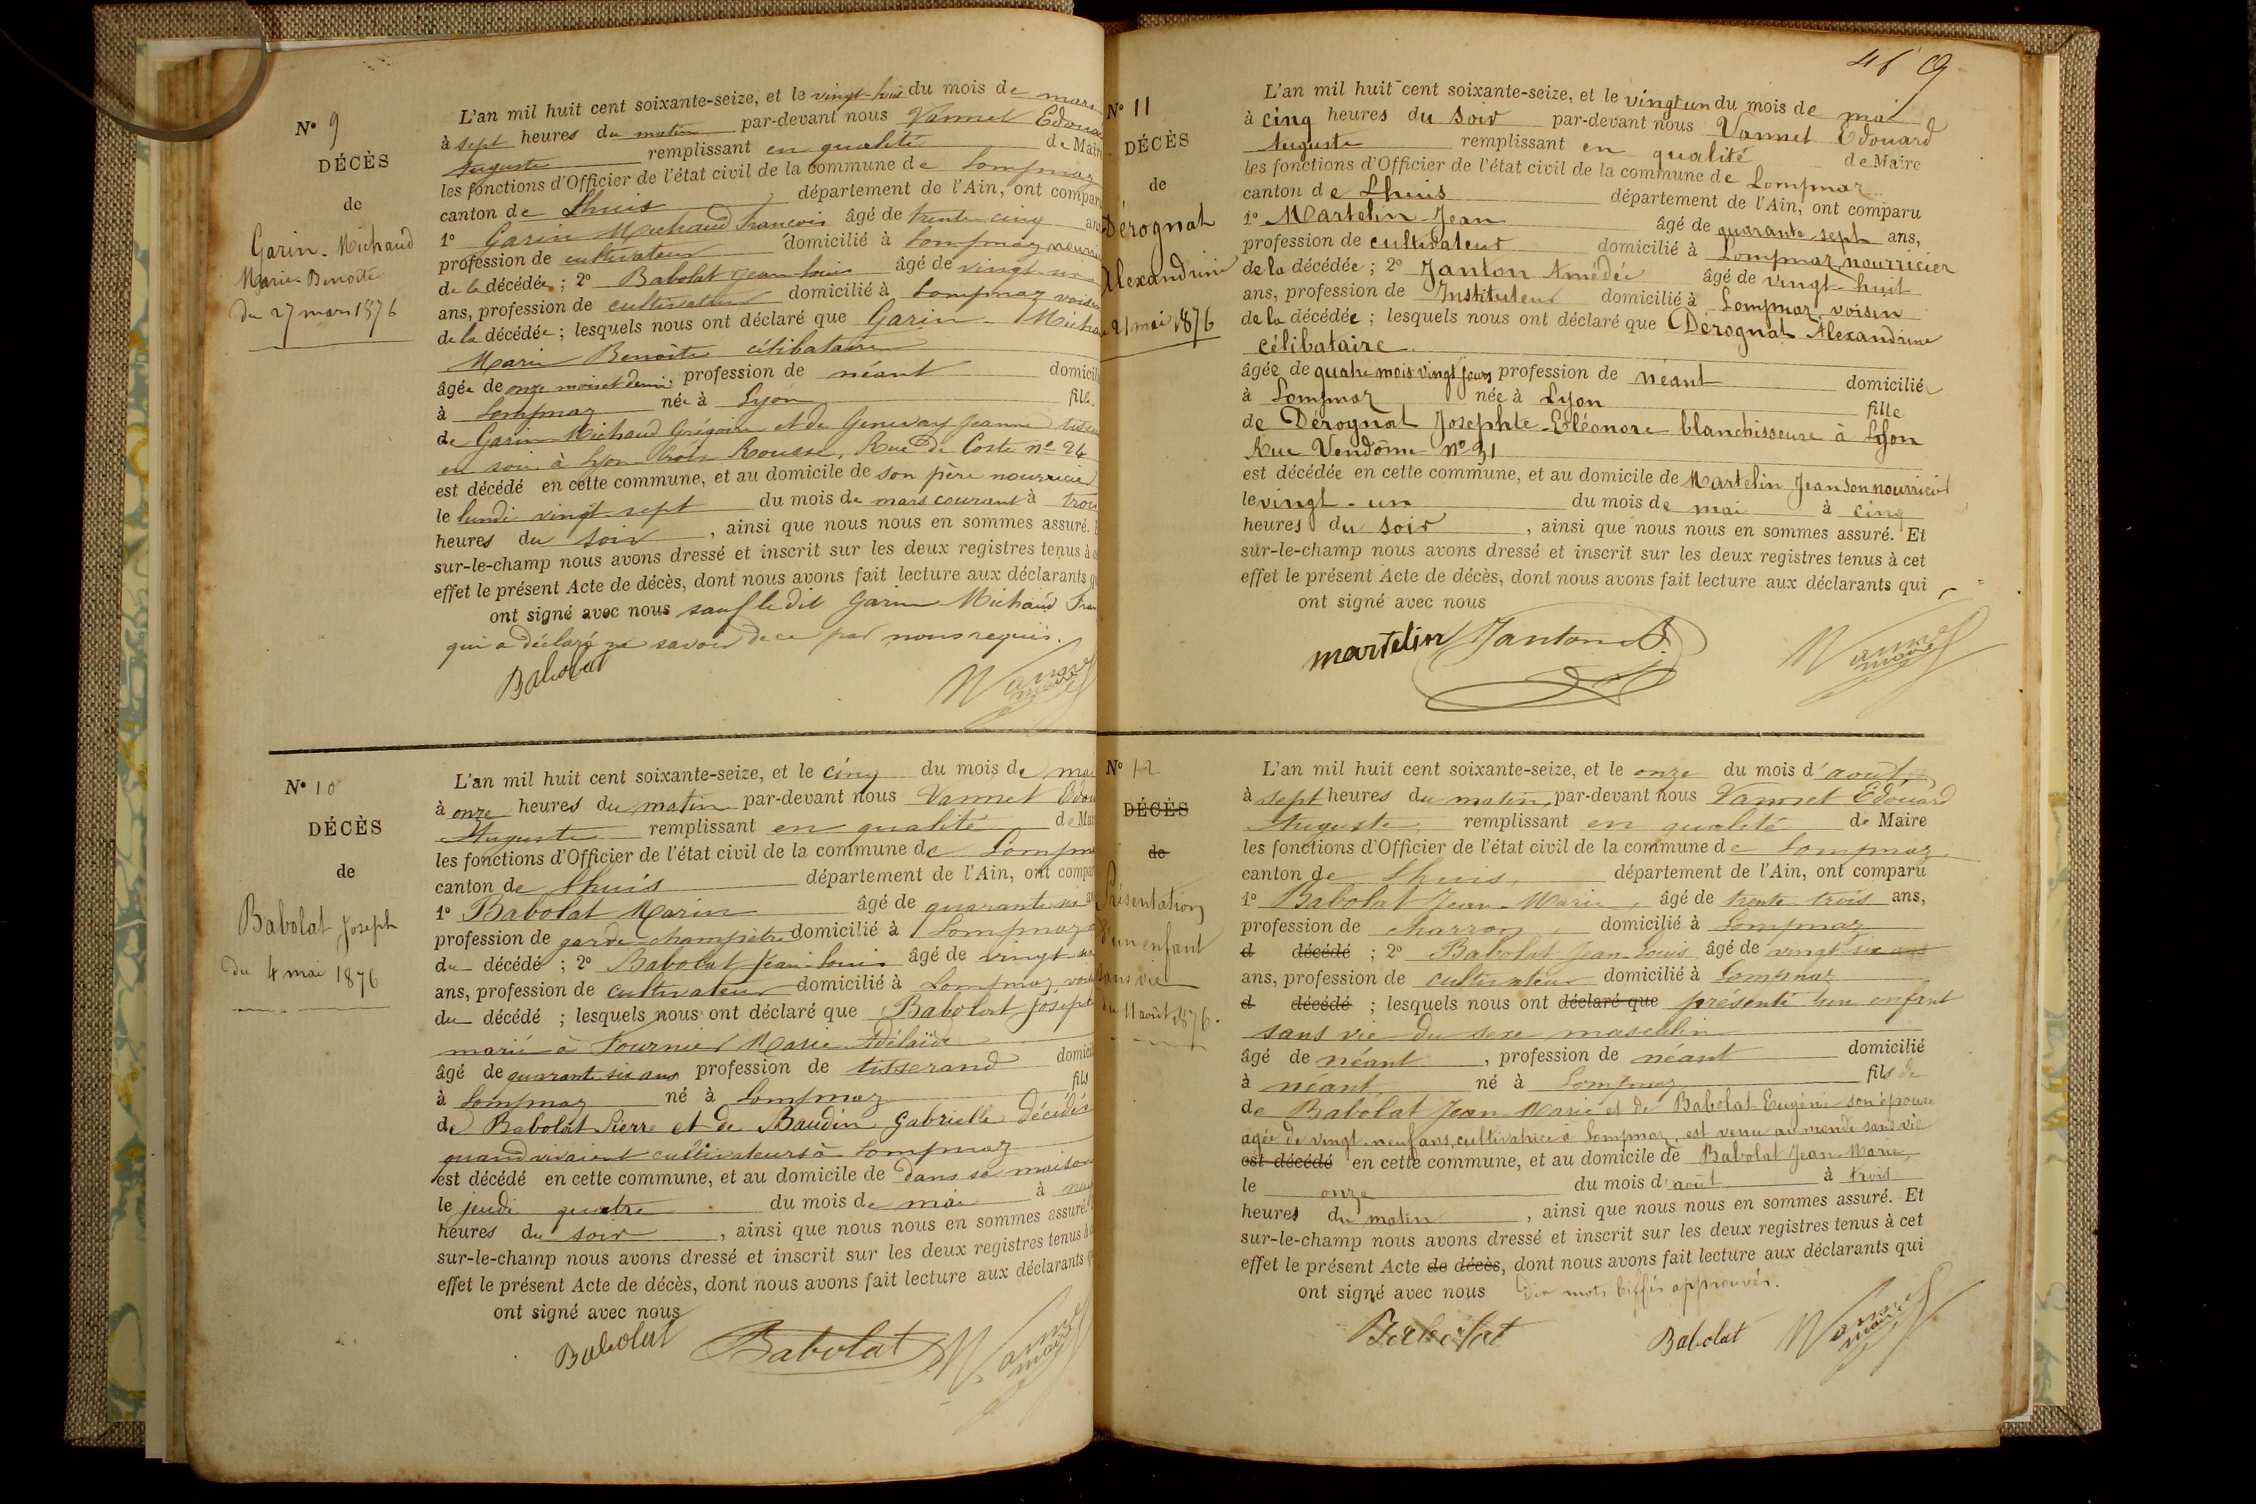 Nº 9
DÉCÈS
de
Garin-Michaud
Marie Benoîte
Du 27 mars 1876
L'an mil huit cent soixante-seize, et le vingt-huit du mois de mars
à sept heures du matin par-devant nous Vannet Edoua
Auguste remplissant en qualité de Maire
les fonctions d'Officier de l'état civil de la commune de Lompnaz
canton de Lhuis département de l'Ain, ont compar
1º Garin Michaud François âgé de trente cinq ans
profession de cultivateur domicilié à Lompnaz
de la décédée; 2º Babolat Jean Louis âgé de vingt
ans, profession de cultivateur domicilié à Lompnaz voisin
de la décédée; lesquels nous ont déclaré que Garin - Micha
Marie Benoîte célibataire
âgée de onze mois et demi profession de néant domicil
à Lompnaz née à Lyon fille
de Garin Michaud Grégoire et de Genevay Jeanne
en soie à Lyon Croix Rousse, Rue de Coste nº 24
est décédé en cette commune, et au domicile de son père nourricier
le lundi vingt sept du mois de mars courant à trois
heures du soir, ainsi que nous nous en sommes assuré.
sur-le-champ nous avons dressé et inscrit sur les deux registres tenus à
effet le présent Acte de décès, dont nous avons fait lecture aux déclarants
ont signé avec nous sauf le dit Garin Michaud Fran
qui a déclaré ne savoir de ce par nous requis.
Babolat Vannet maire
Nº 10
DÉCÈS
de
Babolat Joseph
du 4 mai 1876
L'an mil huit cent soixante-seize, et le cinq du mois de mai
à onze heures du matin par-devant nous Vannet Edou
Auguste remplissant en qualité de Mai
les fonctions d'Officier de l'état civil de la commune de Lompn
canton de Lhuis département de l'Ain, ont compar
1º Babolat Marin âgé de quarante
profession de garde champêtre domicilié à Lompnaz
du décédé; 2º Babolat Jean-Louis âgé de vingt
ans, profession de cultivateur domicilié à Lompnaz, vois
du décédé; lesquels nous ont déclaré que Babolat Joseph
marié à Fournier Marie Adélaïde
âgé de quarante six ans profession de tisserand domicil
à Lompnaz né à Lompnaz fils
de Babolat Pierre et de Baudin Gabrielle décédés
quand vivaient cultivateurs à Lompnaz
est décédé en cette commune, et au domicile de dans sa maison
le jeudi quatre du mois de mai à neuf
heures du soir, ainsi que nous nous en sommes assuré.
sur-le-champ nous avons dressé et inscrit sur les deux registres tenus à
effet le présent Acte de décès, dont nous avons fait lecture aux déclarants
ont signé avec nous
Babolat Babolat Vannet maire
9
Nº 11
DÉCÈS
de
Dérognat
Alexandrine
21 mai 1876
L'an mil huit cent soixante-seize, et le vingt un du mois de mai
à cinq heures du soir par-devant nous Vannet Edouard
Auguste remplissant en qualité de Maire
les fonctions d'Officier de l'état civil de la commune de Lompnaz
canton de Lhuis département de l'Ain, ont comparu
1º Martelin Jean âgé de quarante sept ans,
profession de cultivateur domicilié à Lompnaz, nourricier
de la décédée; 2º Janton Amédée âgé de vingt-huit
ans, profession de Instituteur domicilié à Lompnaz, voisin
de la décédée; lesquels nous ont déclaré que Dérognat Alexandrine
célibataire
âgée de quatre mois vingt jours profession de néant domiciliée
à Lompnaz née à Lyon fille
de Dérognat Josephte-Eléonore blanchisseuse à Lyon
Rue Vendôme Nº 31
est décédée en cette commune, et au domicile de Martelin Jean son nourricier
le vingt-un du mois de mai à cinq
heures du soir, ainsi que nous nous en sommes assuré. Et
sur-le-champ nous avons dressé et inscrit sur les deux registres tenus à cet
effet le présent Acte de décès, dont nous avons fait lecture aux déclarants qui
ont signé avec nous
martelin Janton A. Vannet maire
Nº 12
DÉCÈS
de
Présentation
d'un enfant
sans vie
du 11 août 1876.
L'an mil huit cent soixante-seize, et le onze du mois d'août,
à sept heures du matin, par-devant nous Vannet Edouard
Auguste, remplissant en qualité de Maire
les fonctions d'Officier de l'état civil de la commune de Lompnaz
canton de Lhuis, département de l'Ain, ont comparu
1º Babolat Jean-Marie, âgé de trente-trois ans,
profession de charron, domicilié à Lompnaz
d décédé; 2º Babolat Jean-Louis âgé de vingt-six ans
ans, profession de cultivateur domicilié à Lompnaz
d décédé; lesquels nous ont déclaré que présenté un enfant
sans vie du sexe masculin
âgé de néant, profession de néant domicilié
à néant, né à Lompnaz fils de
de Babolat Jean Marie et de Babolat Eugénie son épouse
agée de vingt-neuf ans, cultivatrice à Lompnaz, est venu au monde sans vie
est décédé en cette commune, et au domicile de Babolat Jean-Marie,
le onze du mois d'août à trois
heures du matin, ainsi que nous nous en sommes assuré. Et
sur-le-champ nous avons dressé et inscrit sur les deux registres tenus à cet
effet le présent Acte de décès, dont nous avons fait lecture aux déclarants qui
ont signé avec nous Dix mots biffés approuvés.
Babolat Babolat Vannet maire